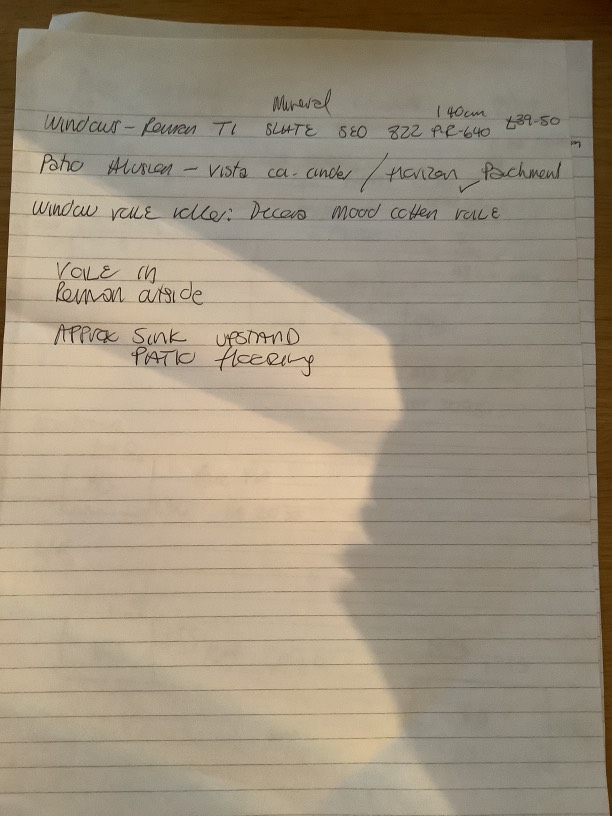 Mineral
Windows - Roman T1 SLATE SEO 822 P.R-640 £39-50
140cm
m
Patio Allusion - Vista ca- ander / Horizon ✓ Parchment
Window VOILE roller: Decora Mood cotten VOILE
VOILE in
Roman outside
APPROX SINK UPSTAND
PATIO flooring